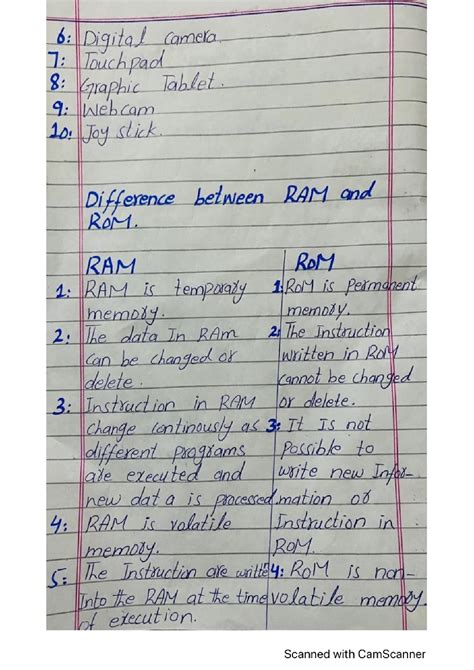 6: Digital camera
7: Touchpad
8: Graphic Tablet.
9: Webcam
10: Joy stick.
Difference between RAM and
ROM.
RAM
1: RAM is temporary
memory.
2: The data In RAm
can be changed or
delete.
3: Instruction in RAM
change continously as
different programs
are executed and
new data is processed.
4: RAM is volatile
memory.
5: The Instruction are written
Into the RAM at the time
of execution.
RoM
1: RoM is Permanent
memory.
2: The Instruction
written in RoM
cannot be changed
or delete.
3: It Is not
Possible to
write new Infor-
mation or
Instruction in
ROM.
4: RoM is non-
volatile memory.
Scanned with CamScanner